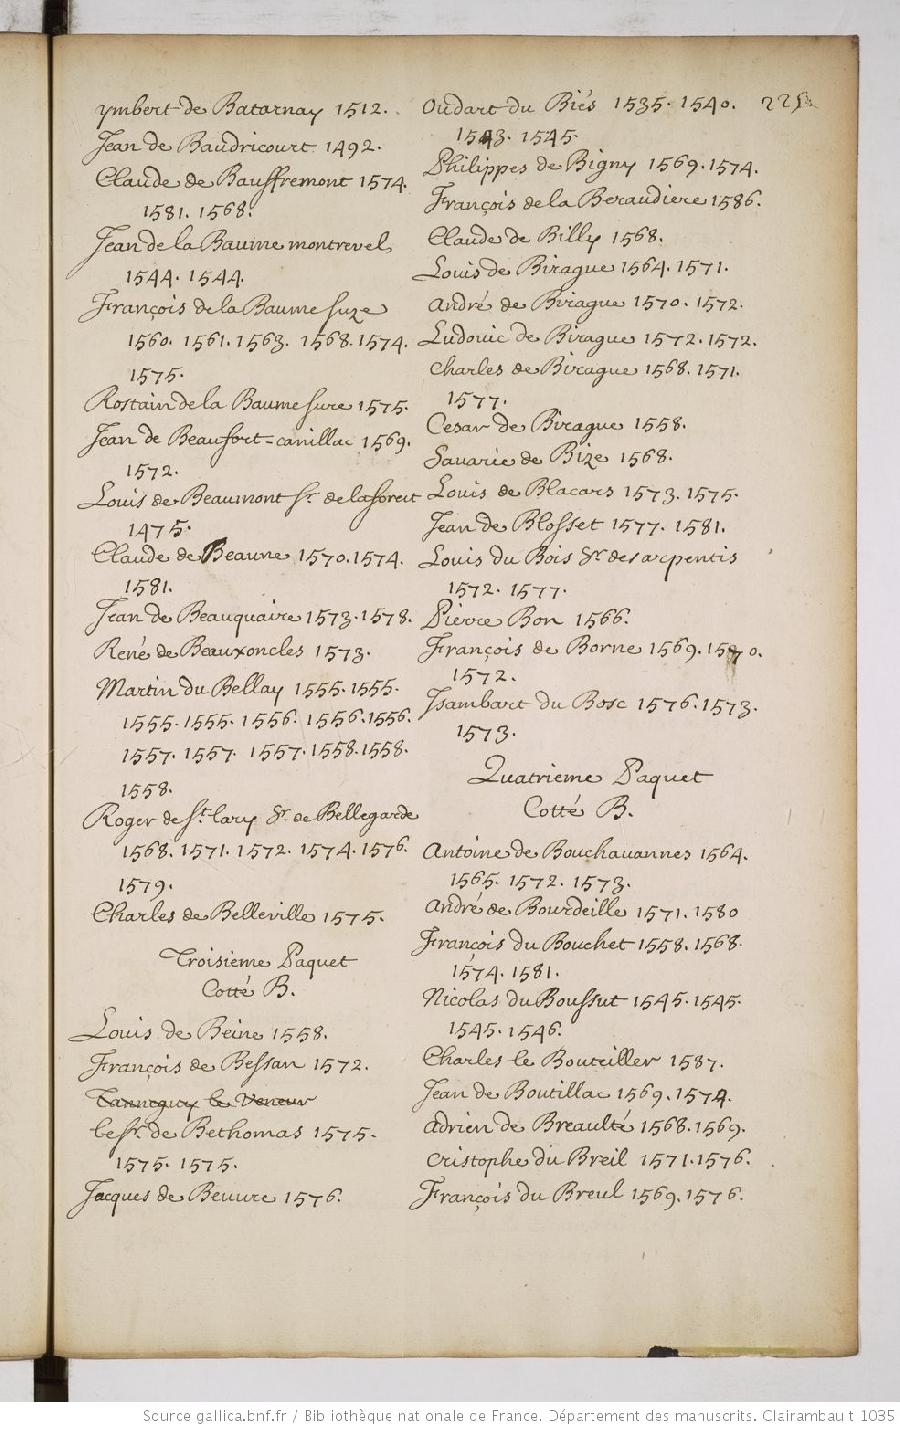 ymbert de Batarnay 1512.
Jean de Baudricourt 1492.
Claude de Bauffremont 1574.
1581. 1568.
Jean de la Baume montrevel
1544. 1544.
François de la Baume suze
1560. 1561. 1563. 1568. 1574.
1575.
Rostain de la Baume sure 1575.
Jean de Beaufort=canillac 1569.
1572.
Louis de Beaumont sr. de la forest
1475.
Claude de Beaune 1570. 1574.
1581.
Jean de Beauquaire 1573. 1578.
René de Beauxoncles 1573.
Martin du Bellay 1555. 1555.
1555. 1555. 1556. 1556. 1556.
1557. 1557. 1557. 1558. 1558.
1558.
Roger de st. lary Sr. de Bellegarde
1568. 1571. 1572. 1574. 1576.
1579.
Charles de Belleville 1575.
Troisieme Paquet
Cotté B.
Louis de Beine 1558.
François de Bessan 1572.
Tanneguy le Veneur
le sr. de Bethomas 1575.
1575. 1575.
Jacques de Beuvre 1576.
Oudart du Biés 1535. 1540.
1543. 1545.
Philippes de Bigny 1569. 1574.
François de la Beraudiere 1586.
Claude de Billy 1568.
Louis de Birague 1564. 1571.
André de Birague 1570. 1572.
Ludovic de Birague 1572. 1572.
Charles de Birague 1568. 1571.
1577.
Cesar de Birague 1558.
Savarie de Bize 1568.
Louis de Blacars 1573. 1575.
Jean de Blosset 1577. 1581.
Louis du Bois Sr. des arpentis
1572. 1577.
Pierre Bon 1566.
François de Borne 1569. 1570.
1572.
Isambart du Bosc 1576. 1573.
1573.
Quatrieme Paquet
Cotté B.
Antoine de Bouchavannes 1564.
1565. 1572. 1573.
André de Bourdeille 1571. 1580
François du Bouchet 1558. 1568.
1574. 1581.
Nicolas du Boussut 1545. 1545.
1545. 1546.
Charles le Boutriller 1587.
Jean de Boutillac 1569. 1574.
Adrien de Breaulté 1568. 1569.
Cristophe du Breil 1571. 1576.
François du Breul 1569. 1576.
Source gallica.bnf.fr / Bibliothèque nationale de France. Département des manuscrits. Clairambault 1035